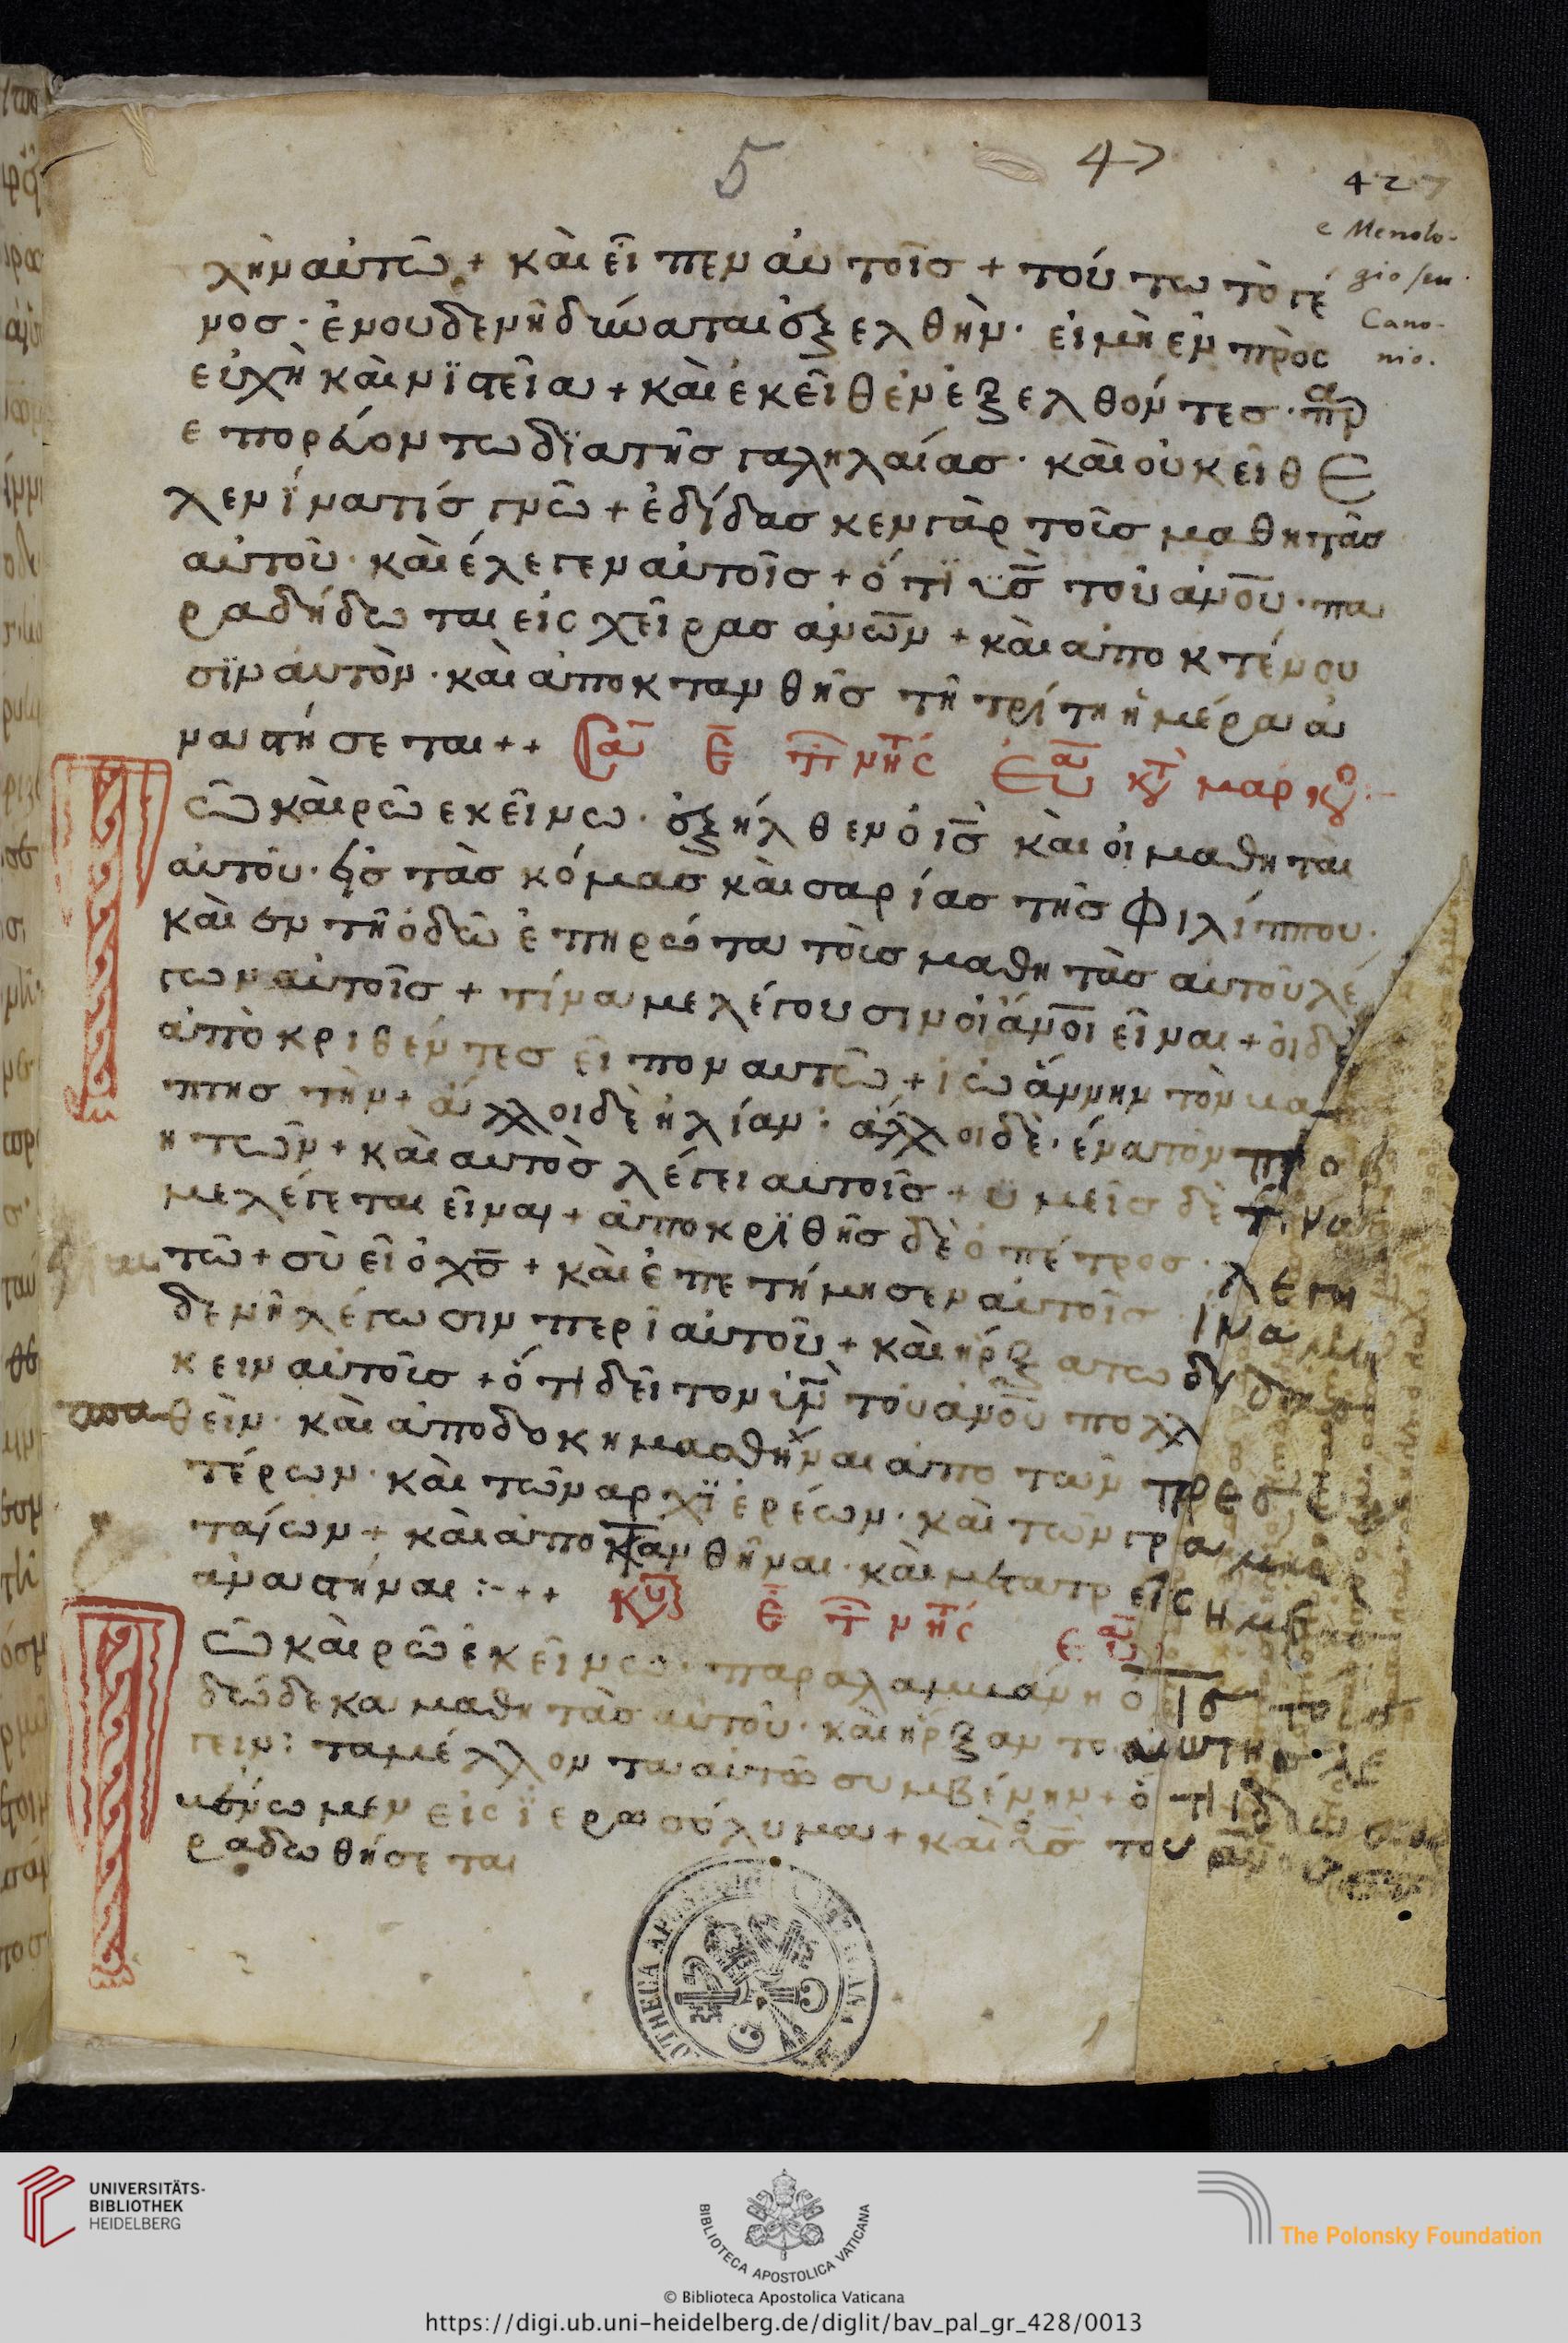 5
47
427
e Menolo-
gio seu
Cano-
nio.
χὴν αὐτῶ + καὶ εἶπεν αὐτοῖσ + τούτω τὸ γέ
νοσ · ἐν ουδενὴ δύναται ἐξελθὴν · εἰ μὴ ἐν πρὸς
εὐχὴ καὶ νϊστεῖα + καὶ ἐκεῖθεν ἐξελθόντεσ · παρ
επορεύοντω δϊα τῆσ γαληλαίασ · καὶ οὐκ εἶθε
λεν ΐνα τίσ γνῶ + ἐδίδασκεν γὰρ τοῖσ μαθητὰσ
αὐτοῦ · καὶ έλεγεν αὐτοῖσ + ό τϊ υ̅σ̅ τοῦ ἀν̅ο̅υ̅ · πα
ραδήδωται εἰς χεῖρασ ἀν̅ω̅ν̅ + καὶ αποκτένου
σϊν αυτὸν · καὶ ἀποκτανθῆσ τῆ τρίτη ἡμέρα ἀ
ναστήσεται + +
ε̅ τ̅ι̅ νη̅ς ευα κτ μαρκου
Τῶ καιρῶ εκεῖνω · ἐξήλθεν ὁ ι̅σ̅ καὶ οἱ μαθηταὶ
αὐτοῦ · εἰσ τὰσ κόμασ καισαρίασ τῆσ Φιλίππου ·
καὶ ἐν τῆ ὁδῶ ἐπηρώτα τοὶσ μαθητὰσ αυτοῦ λέ
γων αὐτοῖσ + τίνα με λέγουσιν οἱ ἄν̅ο̅ι̅ εἶναι + ὁι δὲ
ἀπὸκριθέντεσ εἶπον αυτῶ + ἰωάννην τὸν βα
πτησ τὴν + ἄλλοι δὲ ηλίαν : ἄλλοι δὲ · ένα τὸν προ
η τῶν + καὶ αυτὸσ λέγει αυτοῖσ + ϋμεῖσ δὲ τίνα
με λέγεται εἶναι + ἀποκρϊθῆσ δὲ ὁ πέτροσ · λεγη
τῶ + σὺ εἶ ὁ χ̅σ̅ + καὶ ἐπετήμησεν αὐτοῖσ ίνα μη
δενὴ λέγωσιν περὶ αὐτοῦ + καὶ ήρξατω δηδασ
κειν αὐτοῖσ + ὅτι δεῖ τον υ̅ν̅ τοῦ ἀν̅ο̅υ̅ πολλ
παθεὶν · καὶ ἀποδοκημασθῆναι ἀπο τῶν πρεσβ
τέρων · καὶ τῶν αρχϊερέων · καὶ τῶν γραμμα
ταίων + καὶ ἀποκτανθῆναι · καὶ μετα τρεῖς ημε
ἀναστήναι : + +
κυ ε̅ τ̅ι̅ νη̅ς ευα
Τῶ καιρῶ ἐκεῖνω · παραλαμβάνη ὁ ι̅σ̅ τουσ
δώδεκα μαθητὰσ αὐτοῦ · καὶ ήρξαντο αυτησ λε
γειν : τα μέλλοντα αὐτῶ συμβένην + ὁ τι ιδου
βένωμεν εἰς ϊερασόλυμα + καὶ ὁ υ̅σ̅ του αν̅ου
ραδωθήσεται
UNIVERSITÄTS-
BIBLIOTHEK
HEIDELBERG
BIBLIOTECA APOSTOLICA VATICANA
The Polonsky Foundation
© Biblioteca Apostolica Vaticana
https://digi.ub.uni-heidelberg.de/diglit/bav_pal_gr_428/0013